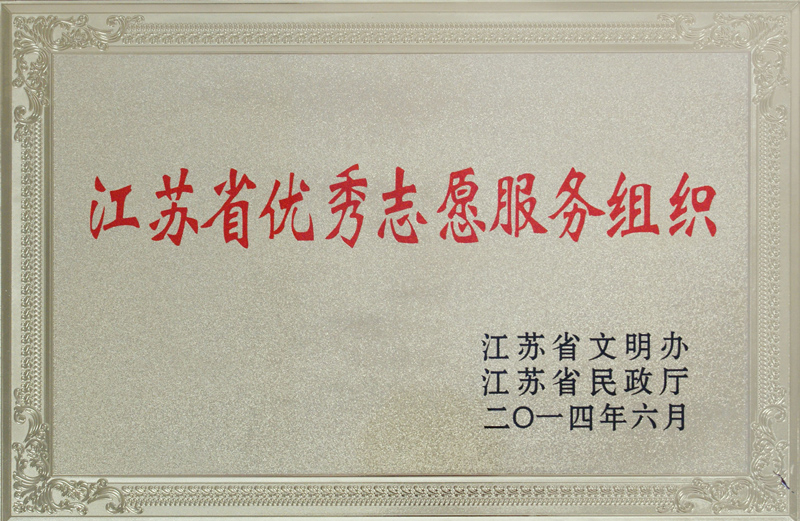 江苏省优秀志愿服务组织
江苏省文明办
江苏省民政厅
二〇一四年六月